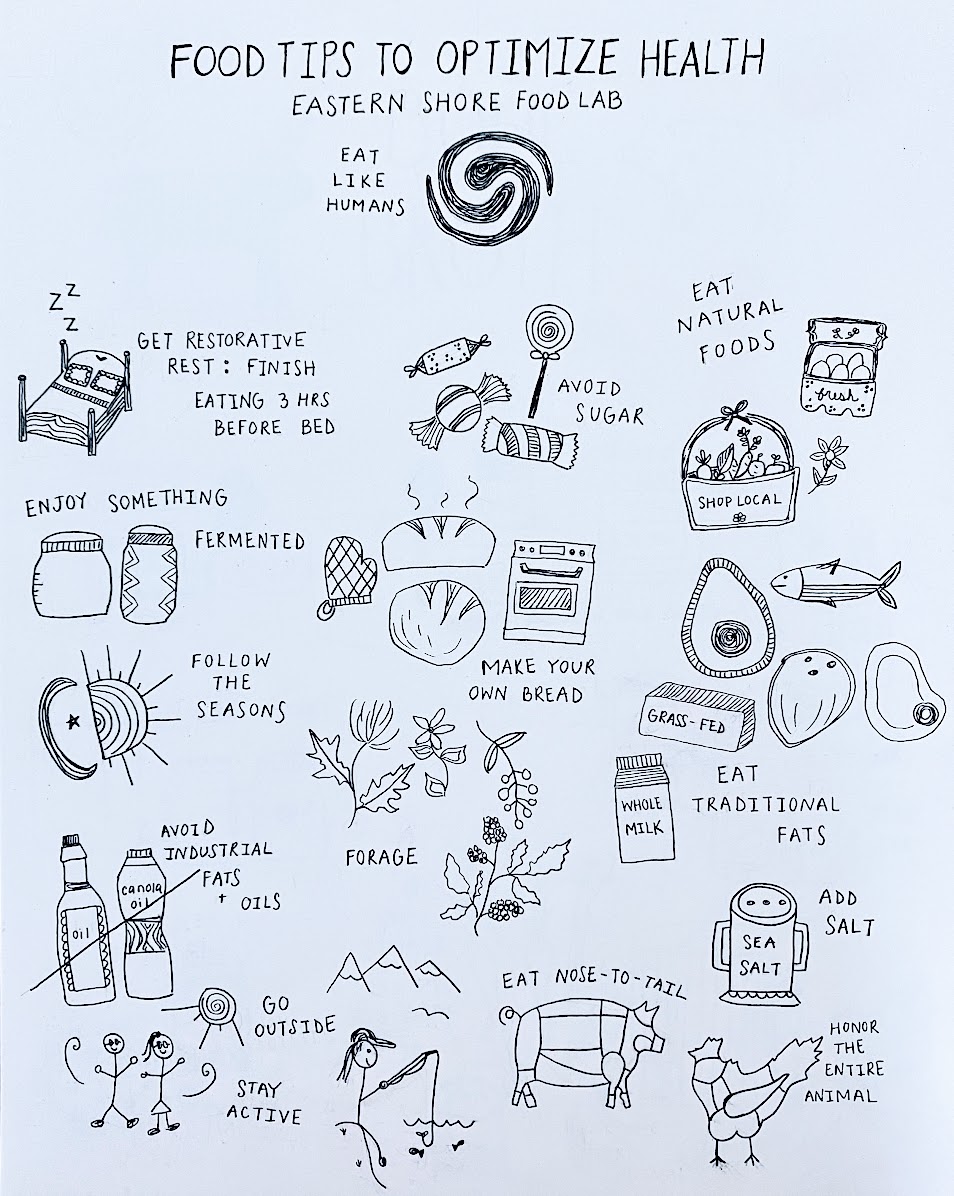 FOOD TIPS TO OPTIMIZE HEALTH
EASTERN SHORE FOOD LAB
EAT
LIKE
HUMANS
ZZ
Z
GET RESTORATIVE
REST: FINISH
EATING 3 HRS
BEFORE BED
AVOID
SUGAR
EAT
NATURAL
FOODS
fresh
SHOP LOCAL
ENJOY SOMETHING
FERMENTED
MAKE YOUR
OWN BREAD
FOLLOW
THE
SEASONS
GRASS-FED
WHOLE
MILK
EAT
TRADITIONAL
FATS
FORAGE
AVOID
INDUSTRIAL
FATS
+ OILS
oil
canola
oil
ADD
SALT
SEA
SALT
GO
OUTSIDE
STAY
ACTIVE
EAT NOSE-TO-TAIL
HONOR
THE
ENTIRE
ANIMAL